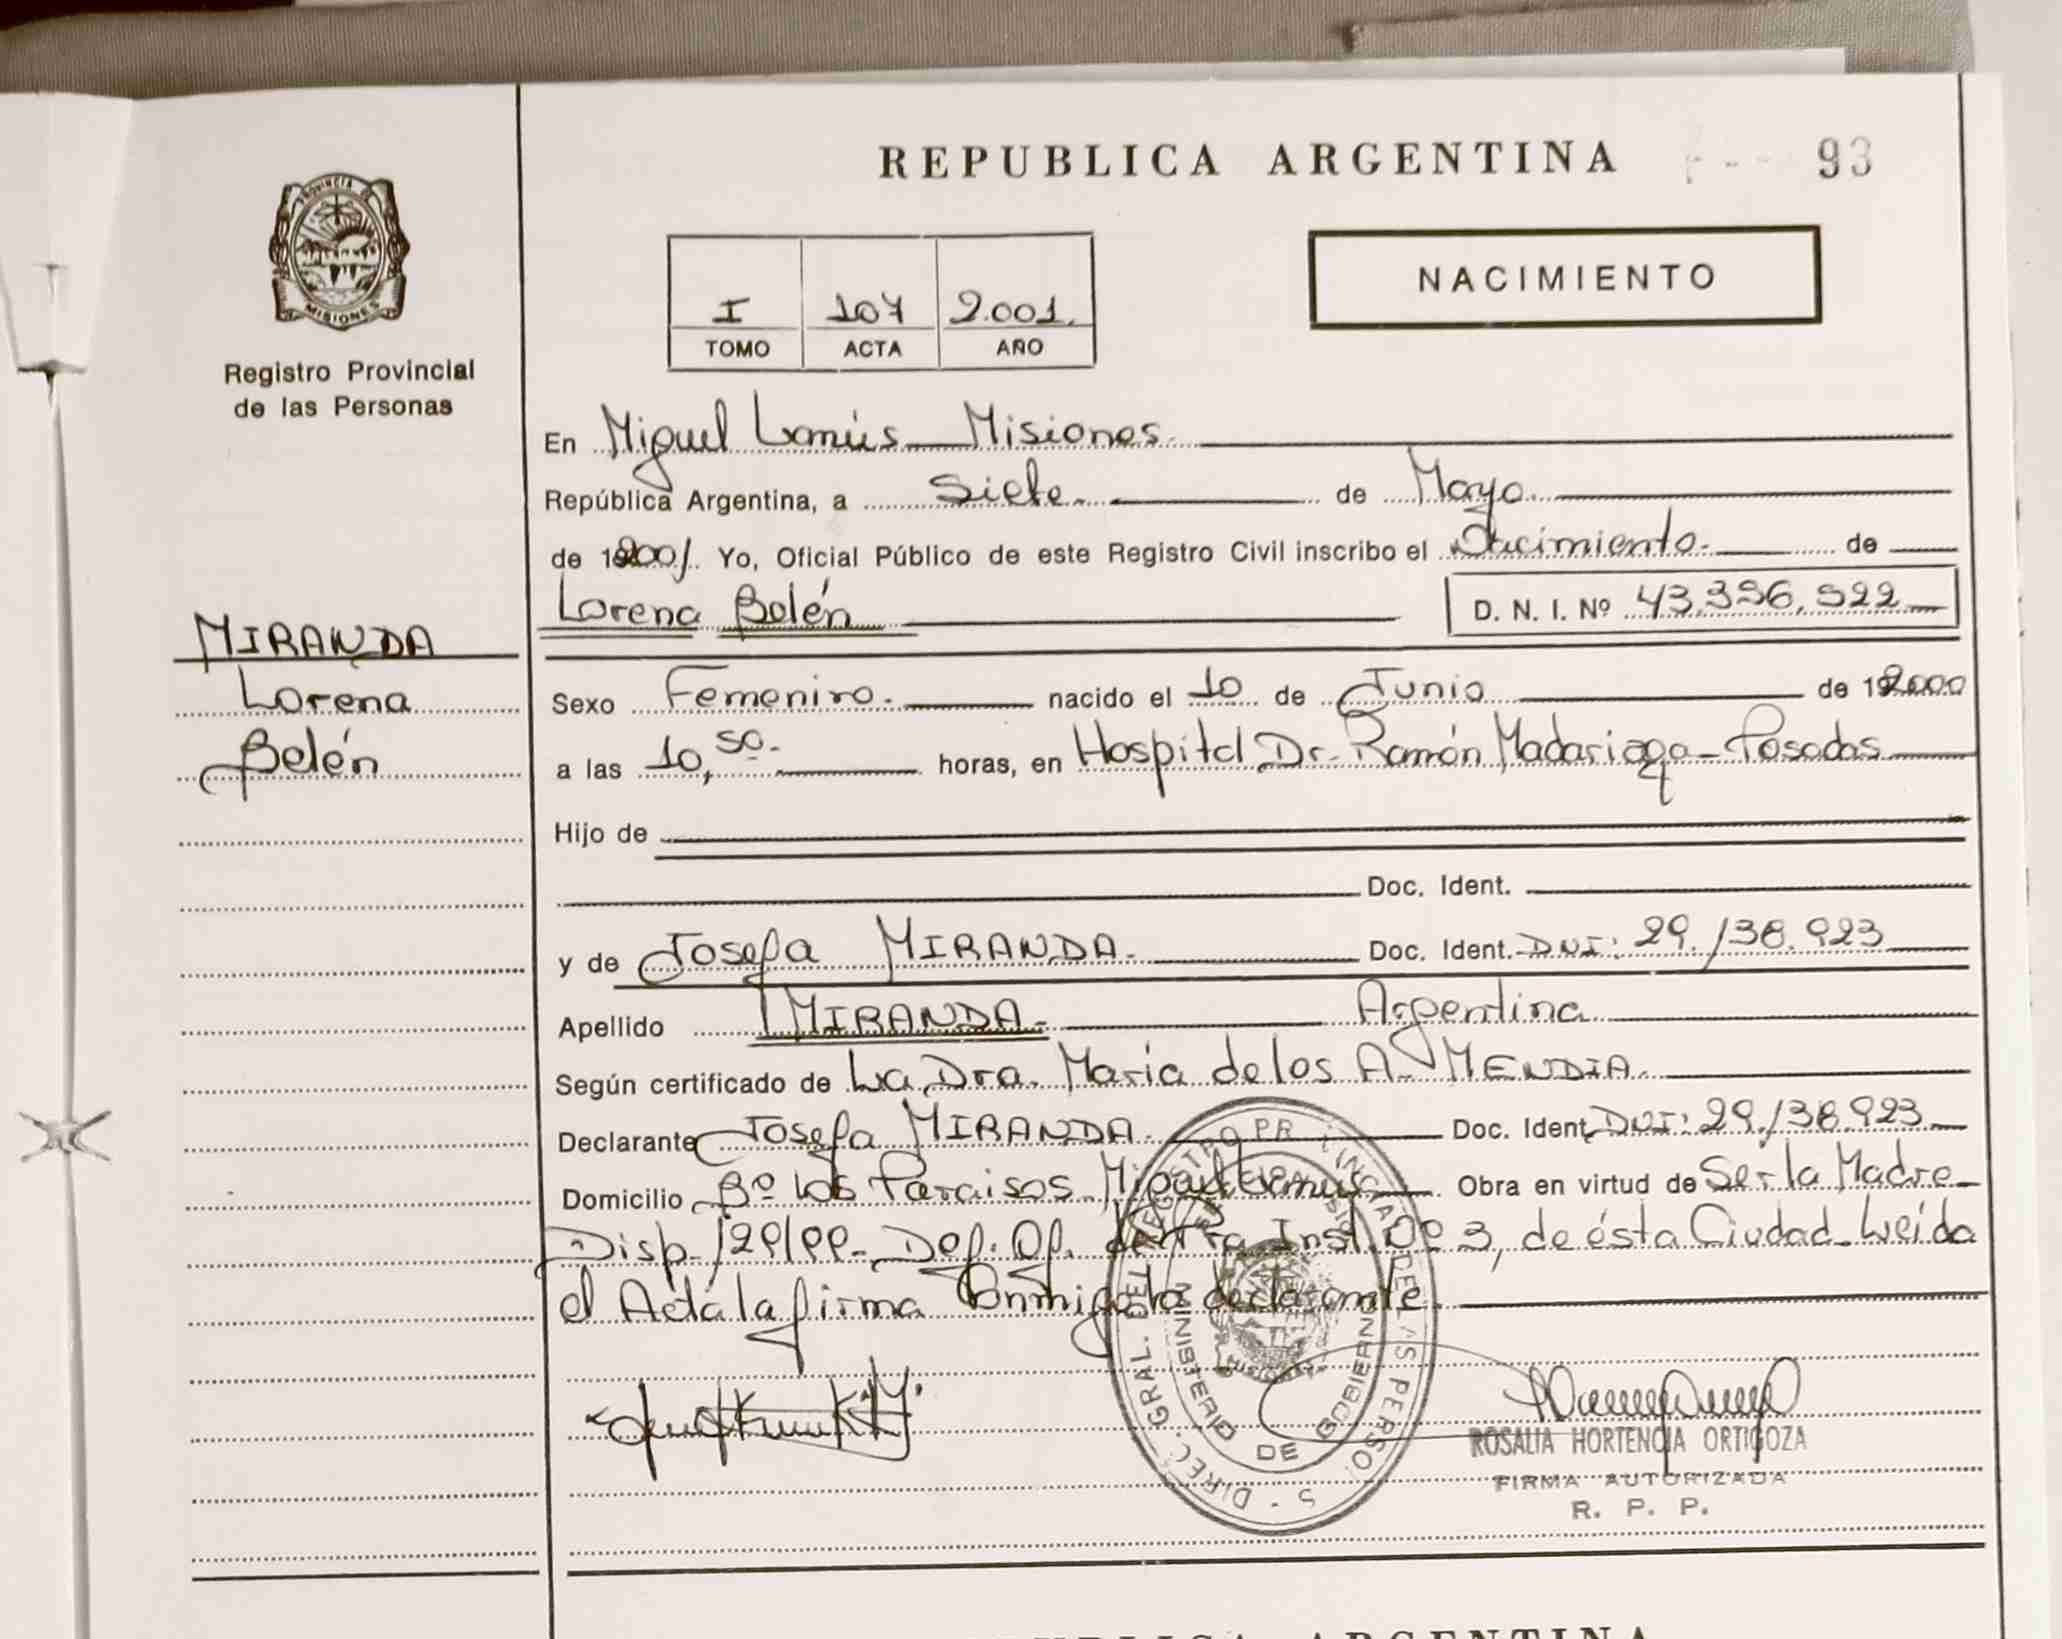 REPUBLICA ARGENTINA
93
PROVINCIA DE
MISIONES
Registro Provincial
de las Personas
I 107 2.001.
TOMO ACTA AÑO
NACIMIENTO
En Miguel Lanús - Misiones
República Argentina, a Siete de Mayo
de 2001. Yo, Oficial Público de este Registro Civil inscribo el Nacimiento. de
Lorena Belén D. N. I. Nº 43.396.922
MIRANDA
Lorena
Belén
Sexo Femenino. nacido el 10 de Junio de 192000
a las 10,50. horas, en Hospital Dr. Ramón Madariaga - Posadas
Hijo de
Doc. Ident.
y de Josefa MIRANDA. Doc. Ident. DNI: 29.138.923
Apellido MIRANDA. Argentina
Según certificado de La Dra. María de los A. MENDIA.
Declarante Josefa MIRANDA. Doc. Ident. DNI: 29.138.923
Domicilio Bº Los Paraisos - Miguel Lanús Obra en virtud de Ser la Madre
Disp. 129/99 - Def. Of. de 1ra Inst. Nº 3, de ésta Ciudad. Leída
el Acta la firma Conmigo la declarante
MINISTERIO DE GOBIERNO
ROSALIA HORTENCIA ORTIGOZA
FIRMA AUTORIZADA
R. P. P.